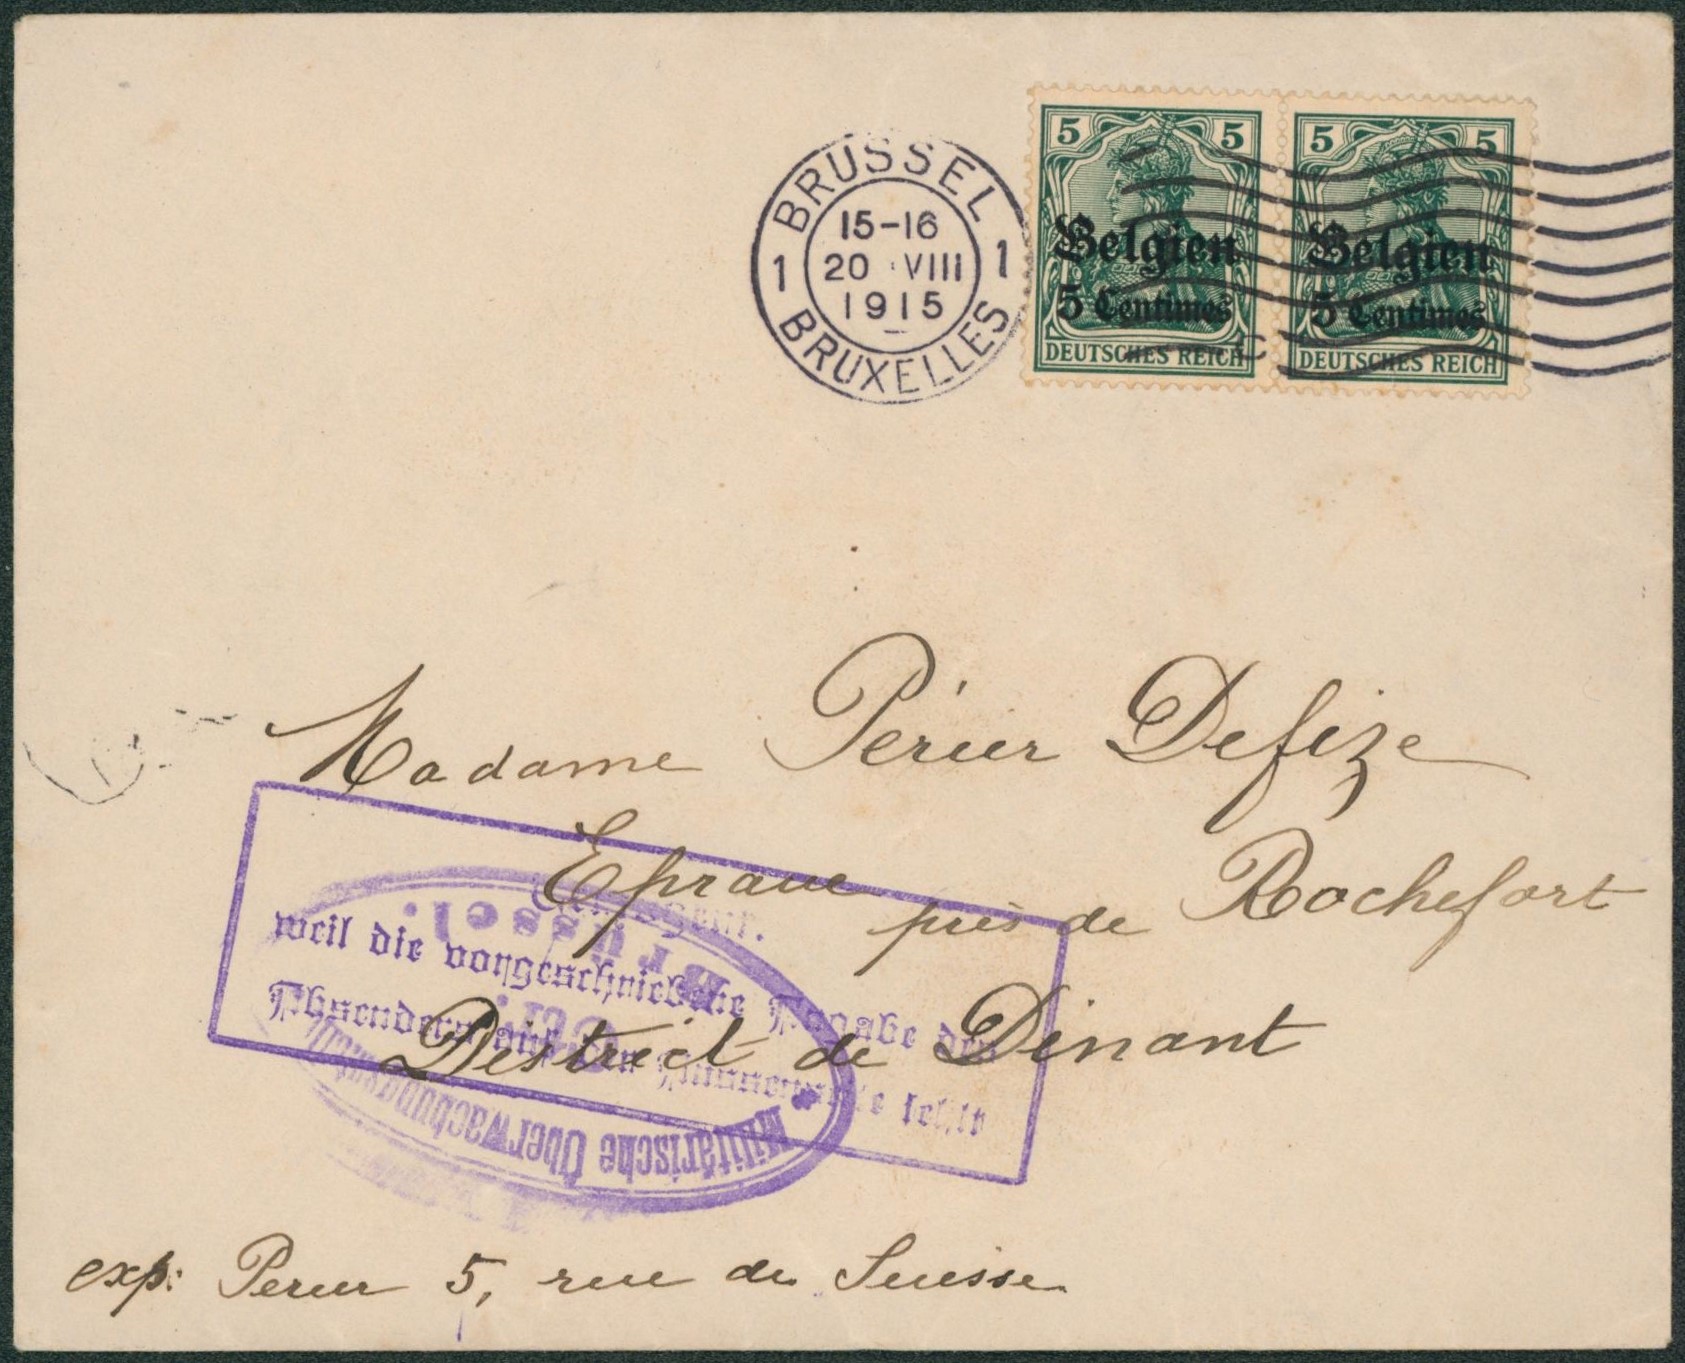 BRUSSEL
15-16
1 20 VIII 1
1915
BRUXELLES
5 5
Belgien
5 Centimes
DEUTSCHES REICH
5 5
Belgien
5 Centimes
DEUTSCHES REICH
Madame Périer Defize
Eprave près de Rochefort
District de Dinant
weil die vorgeschriebene Angabe des
Absenders auf der Aussenseite fehlt
Militärische Überwachungsstelle
Brüssel.
exp: Perier 5, rue de Suisse